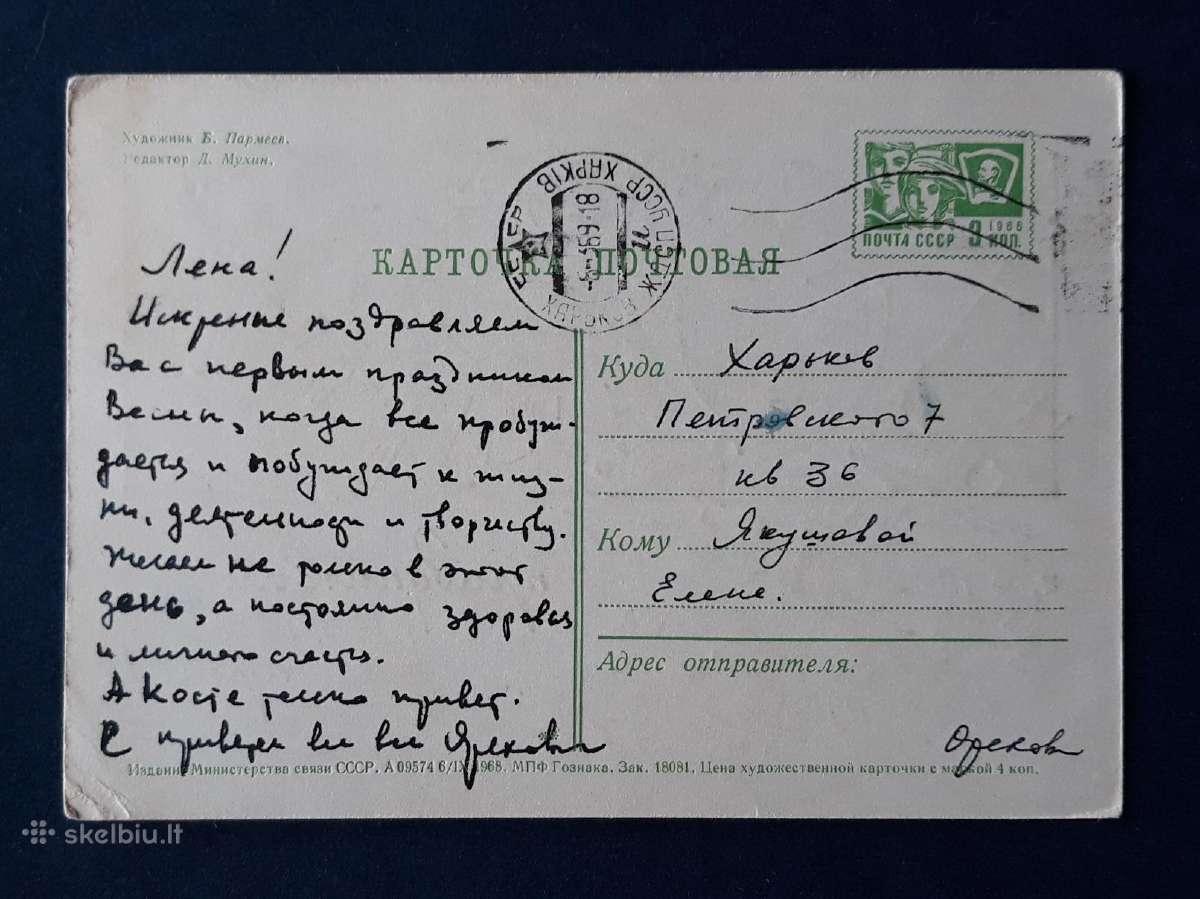 Художник Б. Пармеев.
Редактор Д. Мухин.
КАРТОЧКА ПОЧТОВАЯ
СССР ХАРЬКОВ
УССР ХАРКІВ
ПОЧТА СССР 3 КОП.
1966
Лена!
Искренне поздравляем
Вас с первым праздником
Весны, когда все пробуж-
дается и побуждает к жиз-
ни, деятельности и творчеству.
Желаем не только в этот
день, а постоянно здоровья
и личного счастья.
А Косте только привет.
С приветом
Куда Харьков
Петровского 7
кв 36
Кому Якушовой
Елене.
Адрес отправителя:
Орехова
Издание Министерства связи СССР. А 09574 6/IX 1968. МПФ Гознака. Зак. 18081. Цена художественной карточки с маркой 4 коп.
skelbiu.lt